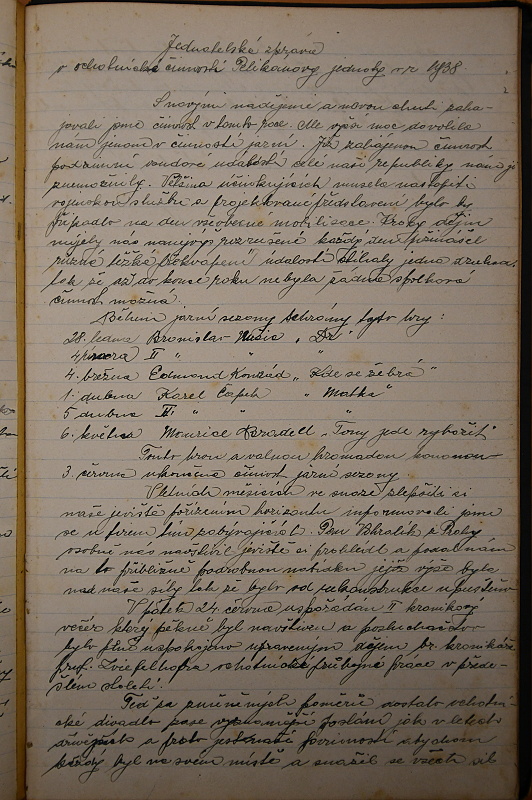 Jednatelská zpráva
o ochotnické činnosti Pelikánovy jednoty v r. 1938.
S novými nadějemi a novou chutí zaha-
jovali jsme činnost v tomto roce. Ale vyšší moc dovolila
nám jenom v činnosti jarní. Již zahájenou činnost
podzimní soudové události celé naší republiky nám ji
znemožnily. Většina účinkujících musela nastoupiti
vojenskou službu a projektované představení bylo by
připadlo na den všeobecné mobilisace. Kroky dějin
míjely nás nanejvýš rozrušené každý den přinášel
různá těžká překvapení událostí stíhaly jedna druhou
tak že až do konce roku nebyla žádná spolková
činnost možná.
Během jarní sezony sehrány tyto hry:
28. ledna Bronislav Nušič „Dr"
4 února II " " "
4. března Edmond Konrád „Kde se žebrá"
1. dubna Karel Čapek „Matka"
5 dubna II " " "
6. května Mouriac „Tony jede rybařit"
Touto hrou a valnou hromadou konanou
3. června ukončena činnost jarní sezony.
V letních měsících ve snaze zlepšiti si
naše jeviště pořízením horizontu informovali jsme
se u firem tím zabývajících. Pan z Prahy
osobně nás navštívil jeviště si prohlédl a podal nám
na to přibližně podrobnou nabídku jejíž výše byla
nad naše síly tak že bylo od rekonstrukce upuštěno
V pátek 24 června uspořádán II kronikový
večer který pěkně byl navštíven a posluchačstvo
bylo plně uspokojeno upraveným dějem br. kronikáře
prof. Zviefelhofra ochotnické průbojné práce v přede-
šlém století.
Teď za změněných poměrů nastalo ochotni-
cké divadlo zase význomější poslání jak v letech
dřívějších a proto jest naší povinností abychom
každý byl na svém místě a snažil se všech sil